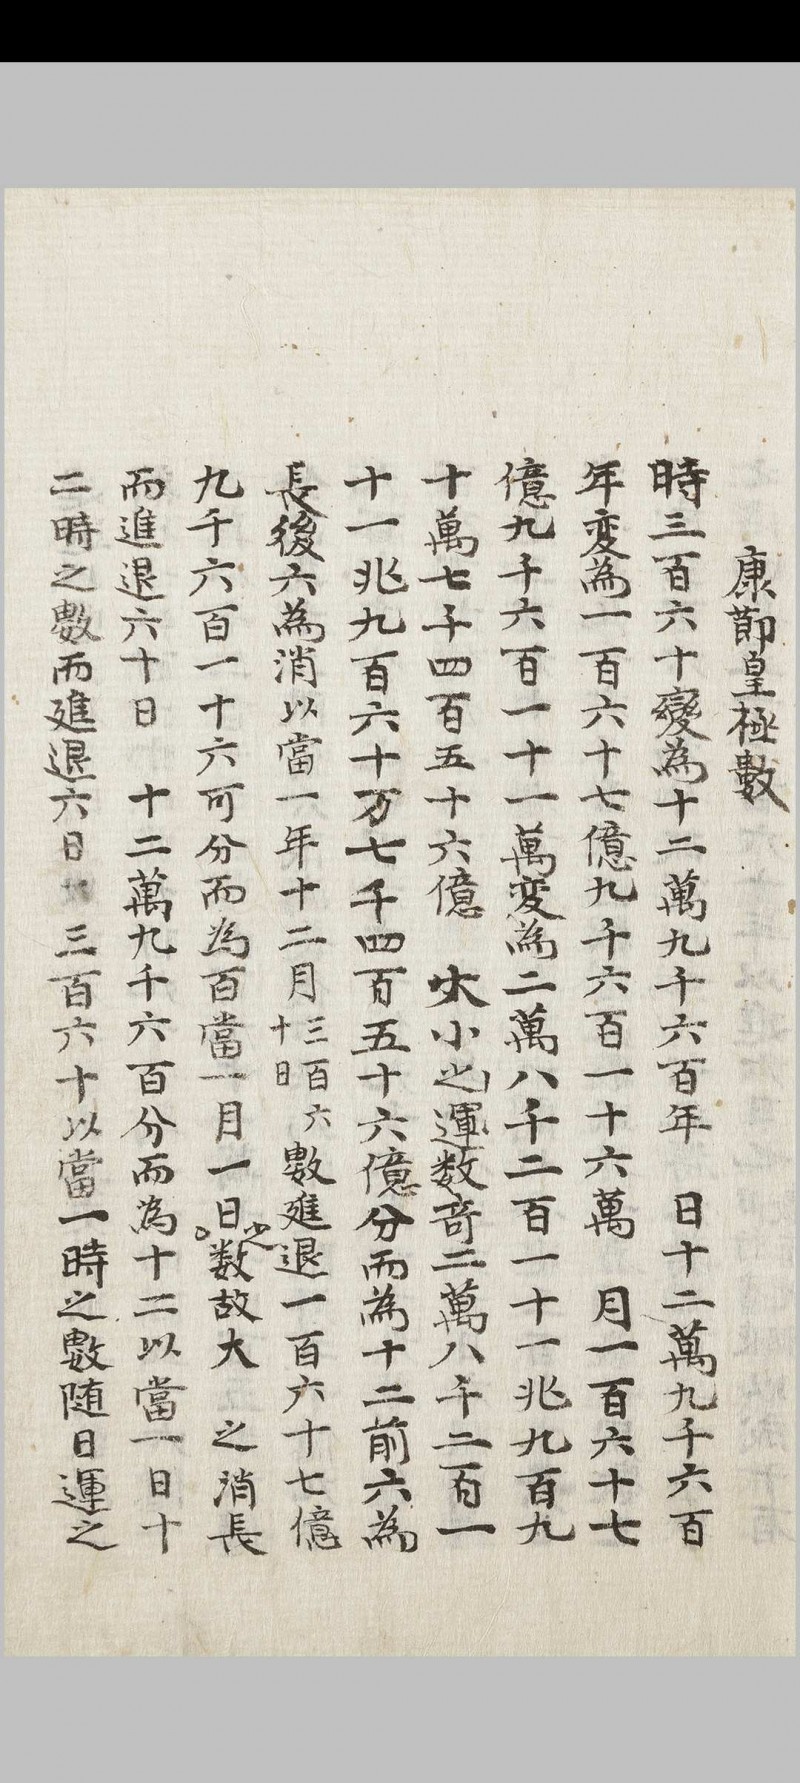 康節皇極數
時三百六十變為十二萬九千六百年 日十二萬九千六百
年変為一百六十七億九千六百一十六萬 月一百六十七
億九千六百一十一萬変為二萬八千二百一十一兆九百九
十萬七千四百五十六億 大小之運数奇二萬八千二百一
十一兆九百六十万七千四百五十六億分而為十二前六為
長後六為消以當一年十二月三百六十日數進退一百六十七億
九千六百一十六可分而為百當一月一日数故大之消長
而進退六十日 十二萬九千六百分而為十二以當一日十
二時之數而進退六日 三百六十以當一時之數随日運之